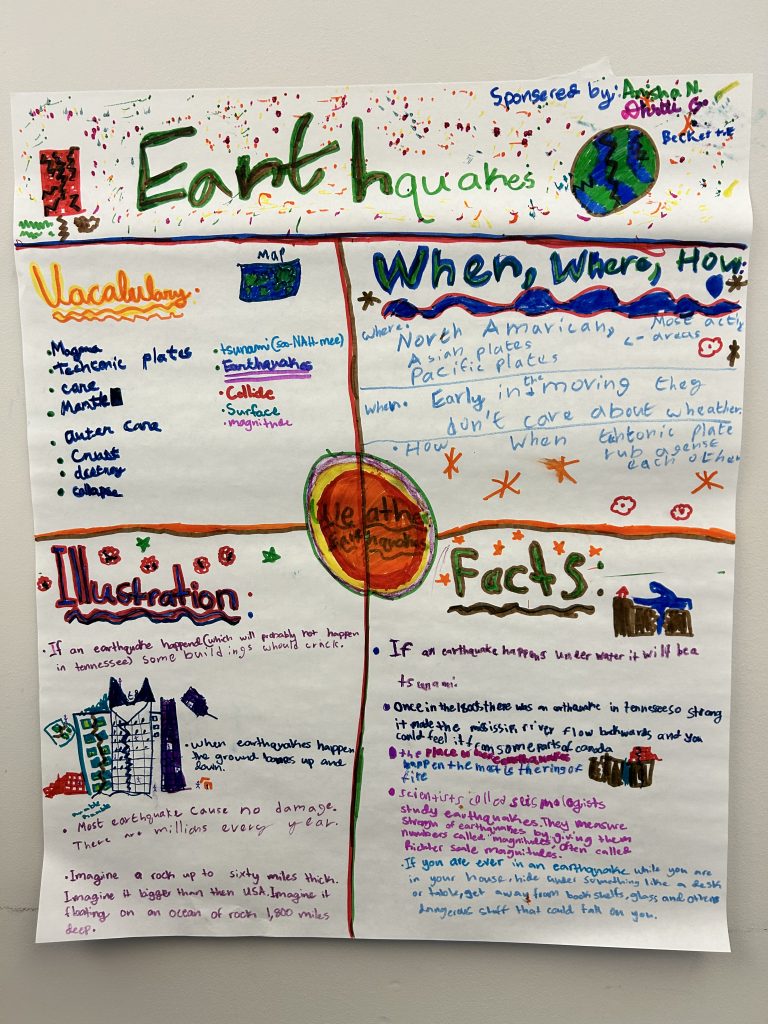 Sponsered by: Anisha N.
Earthquakes
Vacabulary:
MAP
• Magma
• Techtonic plates
• core
• Mantle
• outer core
• Crust
• destroy
• collapse
• tsunami (soo-NAH-mee)
• Earthquakes
• Collide
• Surface
• magnitude
When, Where, How:
where: North Amarican, Most active
Asian plates areas
Pacific plates
when. Early in the moving they
don't care about wheather.
• How When tehtonic plate
rub agenst
each other
Illustration
• If an earthquake happend (which will probably not happen
in tennessee) some buildings would crack.
• when earthquakes happen
the ground bounces up and
down.
• Most earthquake cause no damage.
There are millions every year.
• Imagine a rock up to sixty miles thick.
Imagine it bigger than then USA. Imagine it
floating on an ocean of rock 1,800 miles
deep.
Facts:
• If an earthquake happens under water it will be a
tsunami.
• Once in the 1800s there was an earthquake in tennessee so strong
it made the mississipi river flow backwards and you
could feel it from some parts of canada
• the place were earthquakes
happen the most is the ring of
fire
• scientists called seismologists
study earthquakhes. They measure
strength of earthquakes by giving them
numbers called magnitudes, often called
Richter scale magnitudes.
• If you are ever in an earthquake while you are
in your house, hide under something like a desk
or table, get away from book shelfs, glass and others
dangerous stuff that could fall on you.